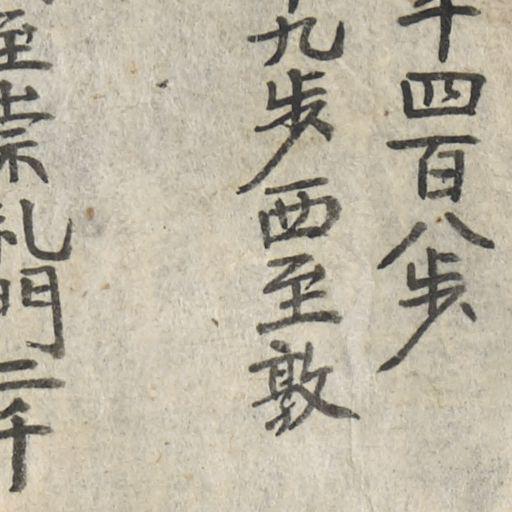 千四百八步
九步西至敦
至崇礼門二千